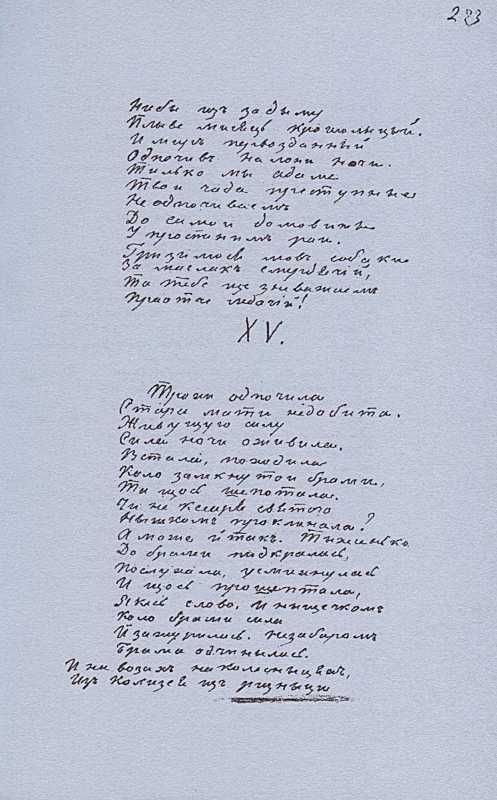 223
Ниби изъ задыму
Плыве мисяць крововый.
И миръ первозданный
Одпочивъ на лони ночи.
Тилько мы адаме
Твои чада преступные
Не одпочиваемъ
До самои домовины
У проспанимъ раи.
Гриземось мовъ собаки
За маслакъ смердячій,
Та тебе ще зневажаемъ
Праотче ледачій!
XV.
Трохи одпочила
Стара мати недобита.
Живущую силу
Сила ночи оживила.
Встала, походила
Коло замкнутои брамы,
Та щось шепотала.
Чи не кесаря святого
Нышкомъ проклинала?
А може й такъ. Тыхенько
До брамы пидкралась,
Послухала, усмихнулась
И щось прошептала,
Якесь слово. И нищечкомъ
Коло брамы сила
Й зажурилась. Незабаромъ
Брама одчинылась.
И на возахъ на колесныцяхъ,
Изъ колизея изъ ризныци